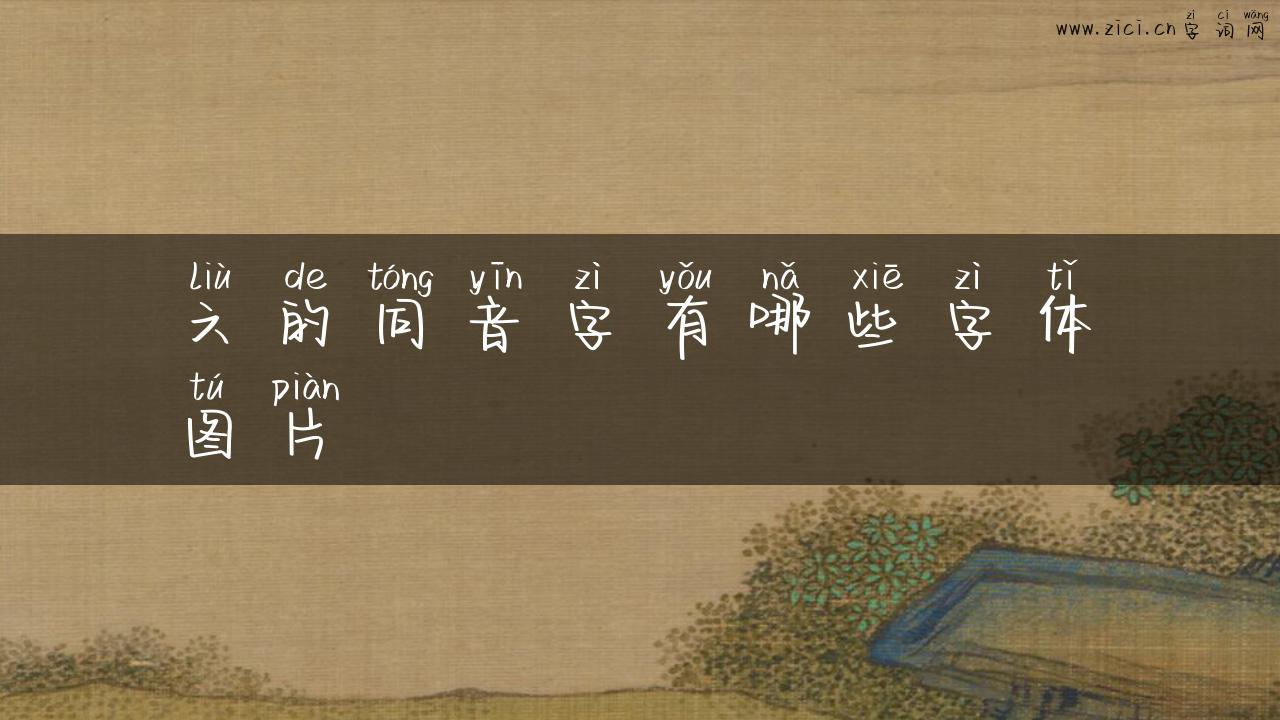 zì cí wǎng
www.zici.cn 字 词 网
liù de tóng yīn zì yǒu nǎ xiē zì tǐ
六 的 同 音 字 有 哪 些 字 体
tú piàn
图 片